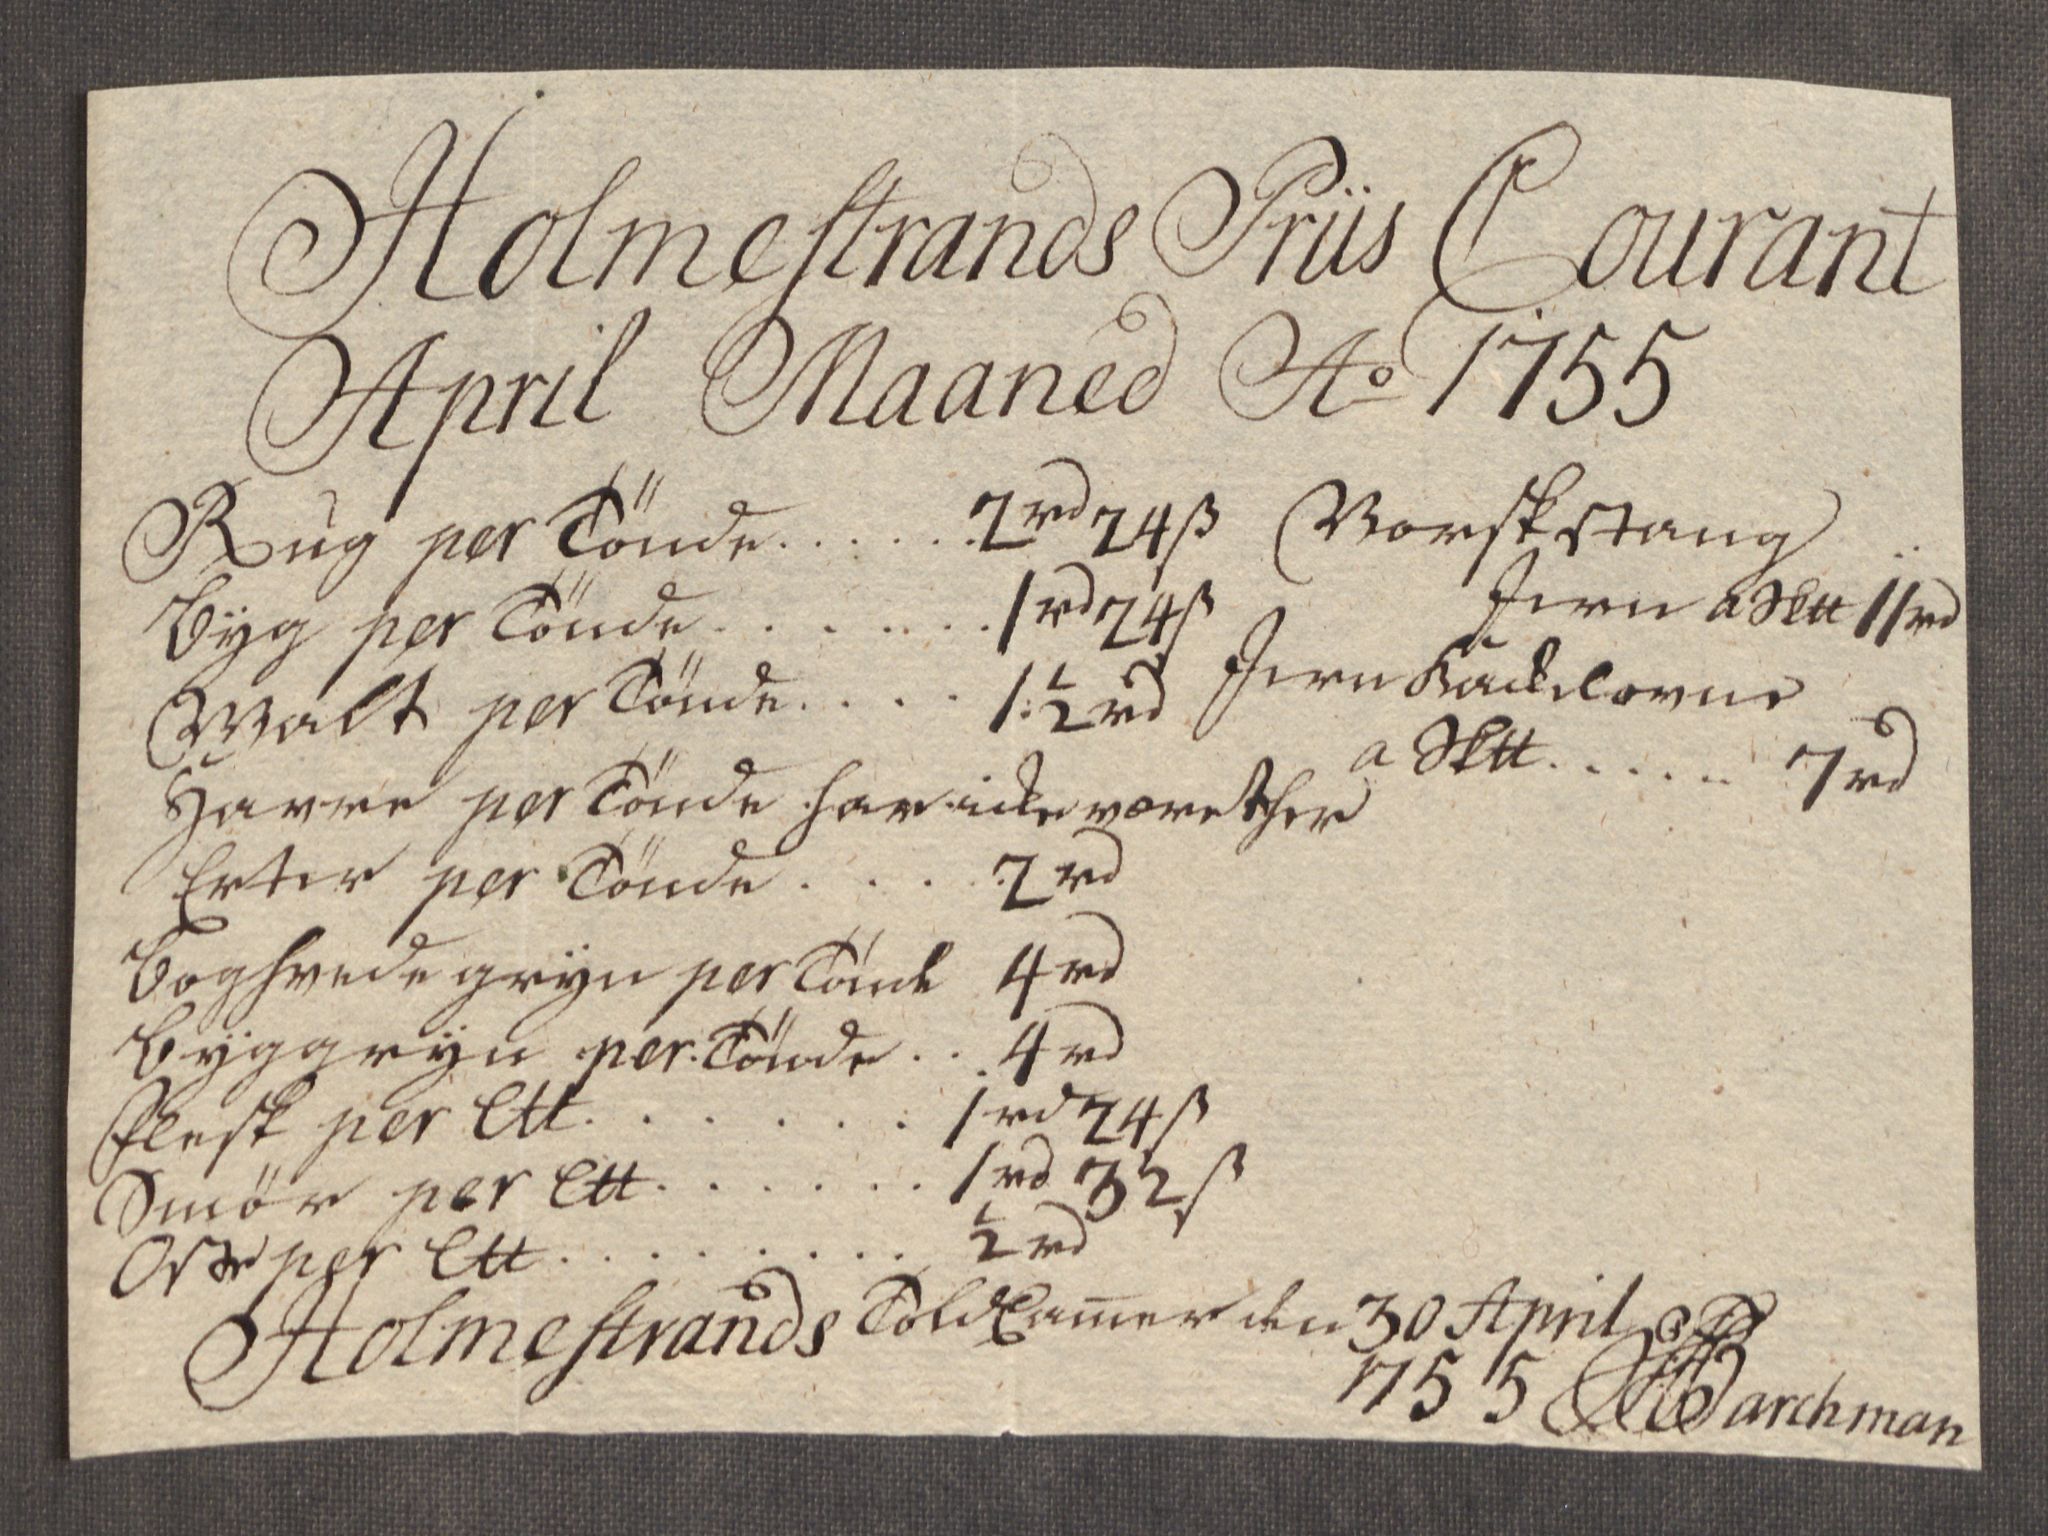 Holmestrands Priis Courant
April Maaned Ao 1755
Rug per Tönde . . . . . . 2rd 24ß
Byg per Tönde . . . . . . . 1rd 24ß
Malt per Tönde . . . . 1½rd
Havre per Tönde har icke været her
Erter per Tönde . . . . . 2rd
Boghvede gryn per Tönde 4rd
Byggryn per Tönde . . . 4rd
Flesk per Ltt . . . . . . . 1rd 24ß
Smör per Ltt . . . . . . 1rd 32ß
Oste per Ltt . . . . . . . . . ½rd
Norsk stang
Jern a Sktt 11rd
Jern Kackelovne
a Sktt . . . . . . 7rd
Holmestrands Told Camer den 30 April
1755 Barchman